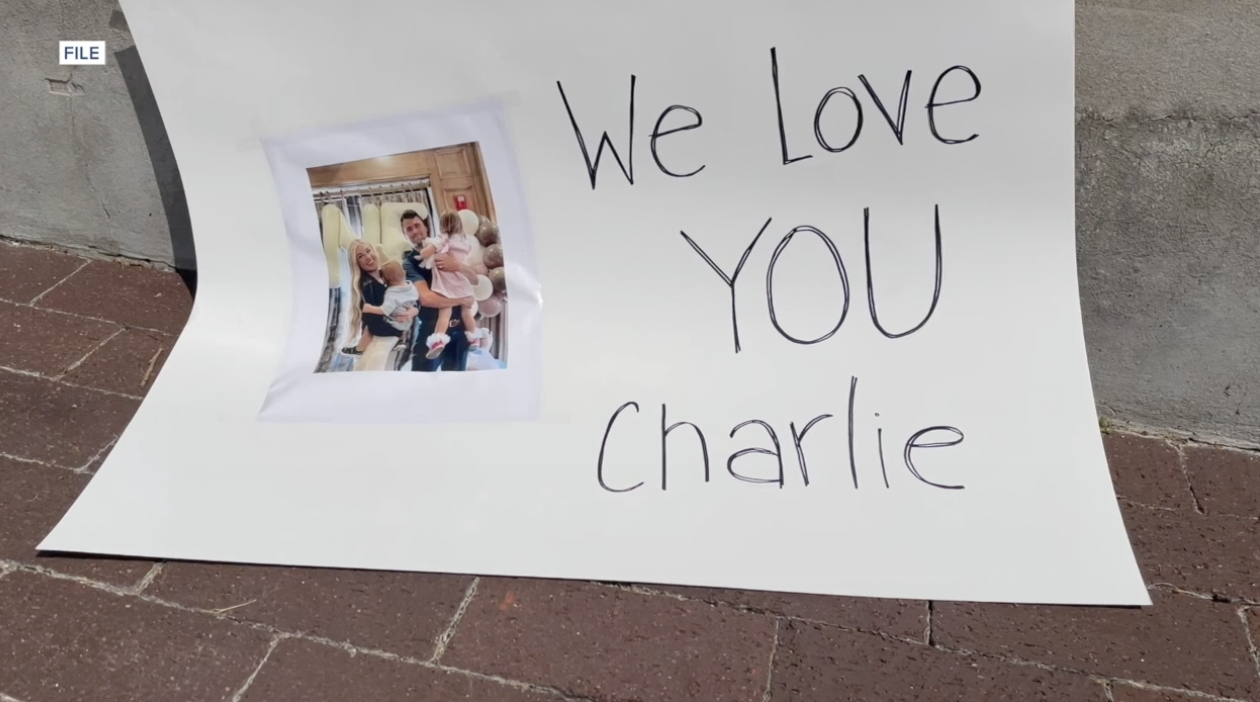 FILE
We Love
YOU
Charlie